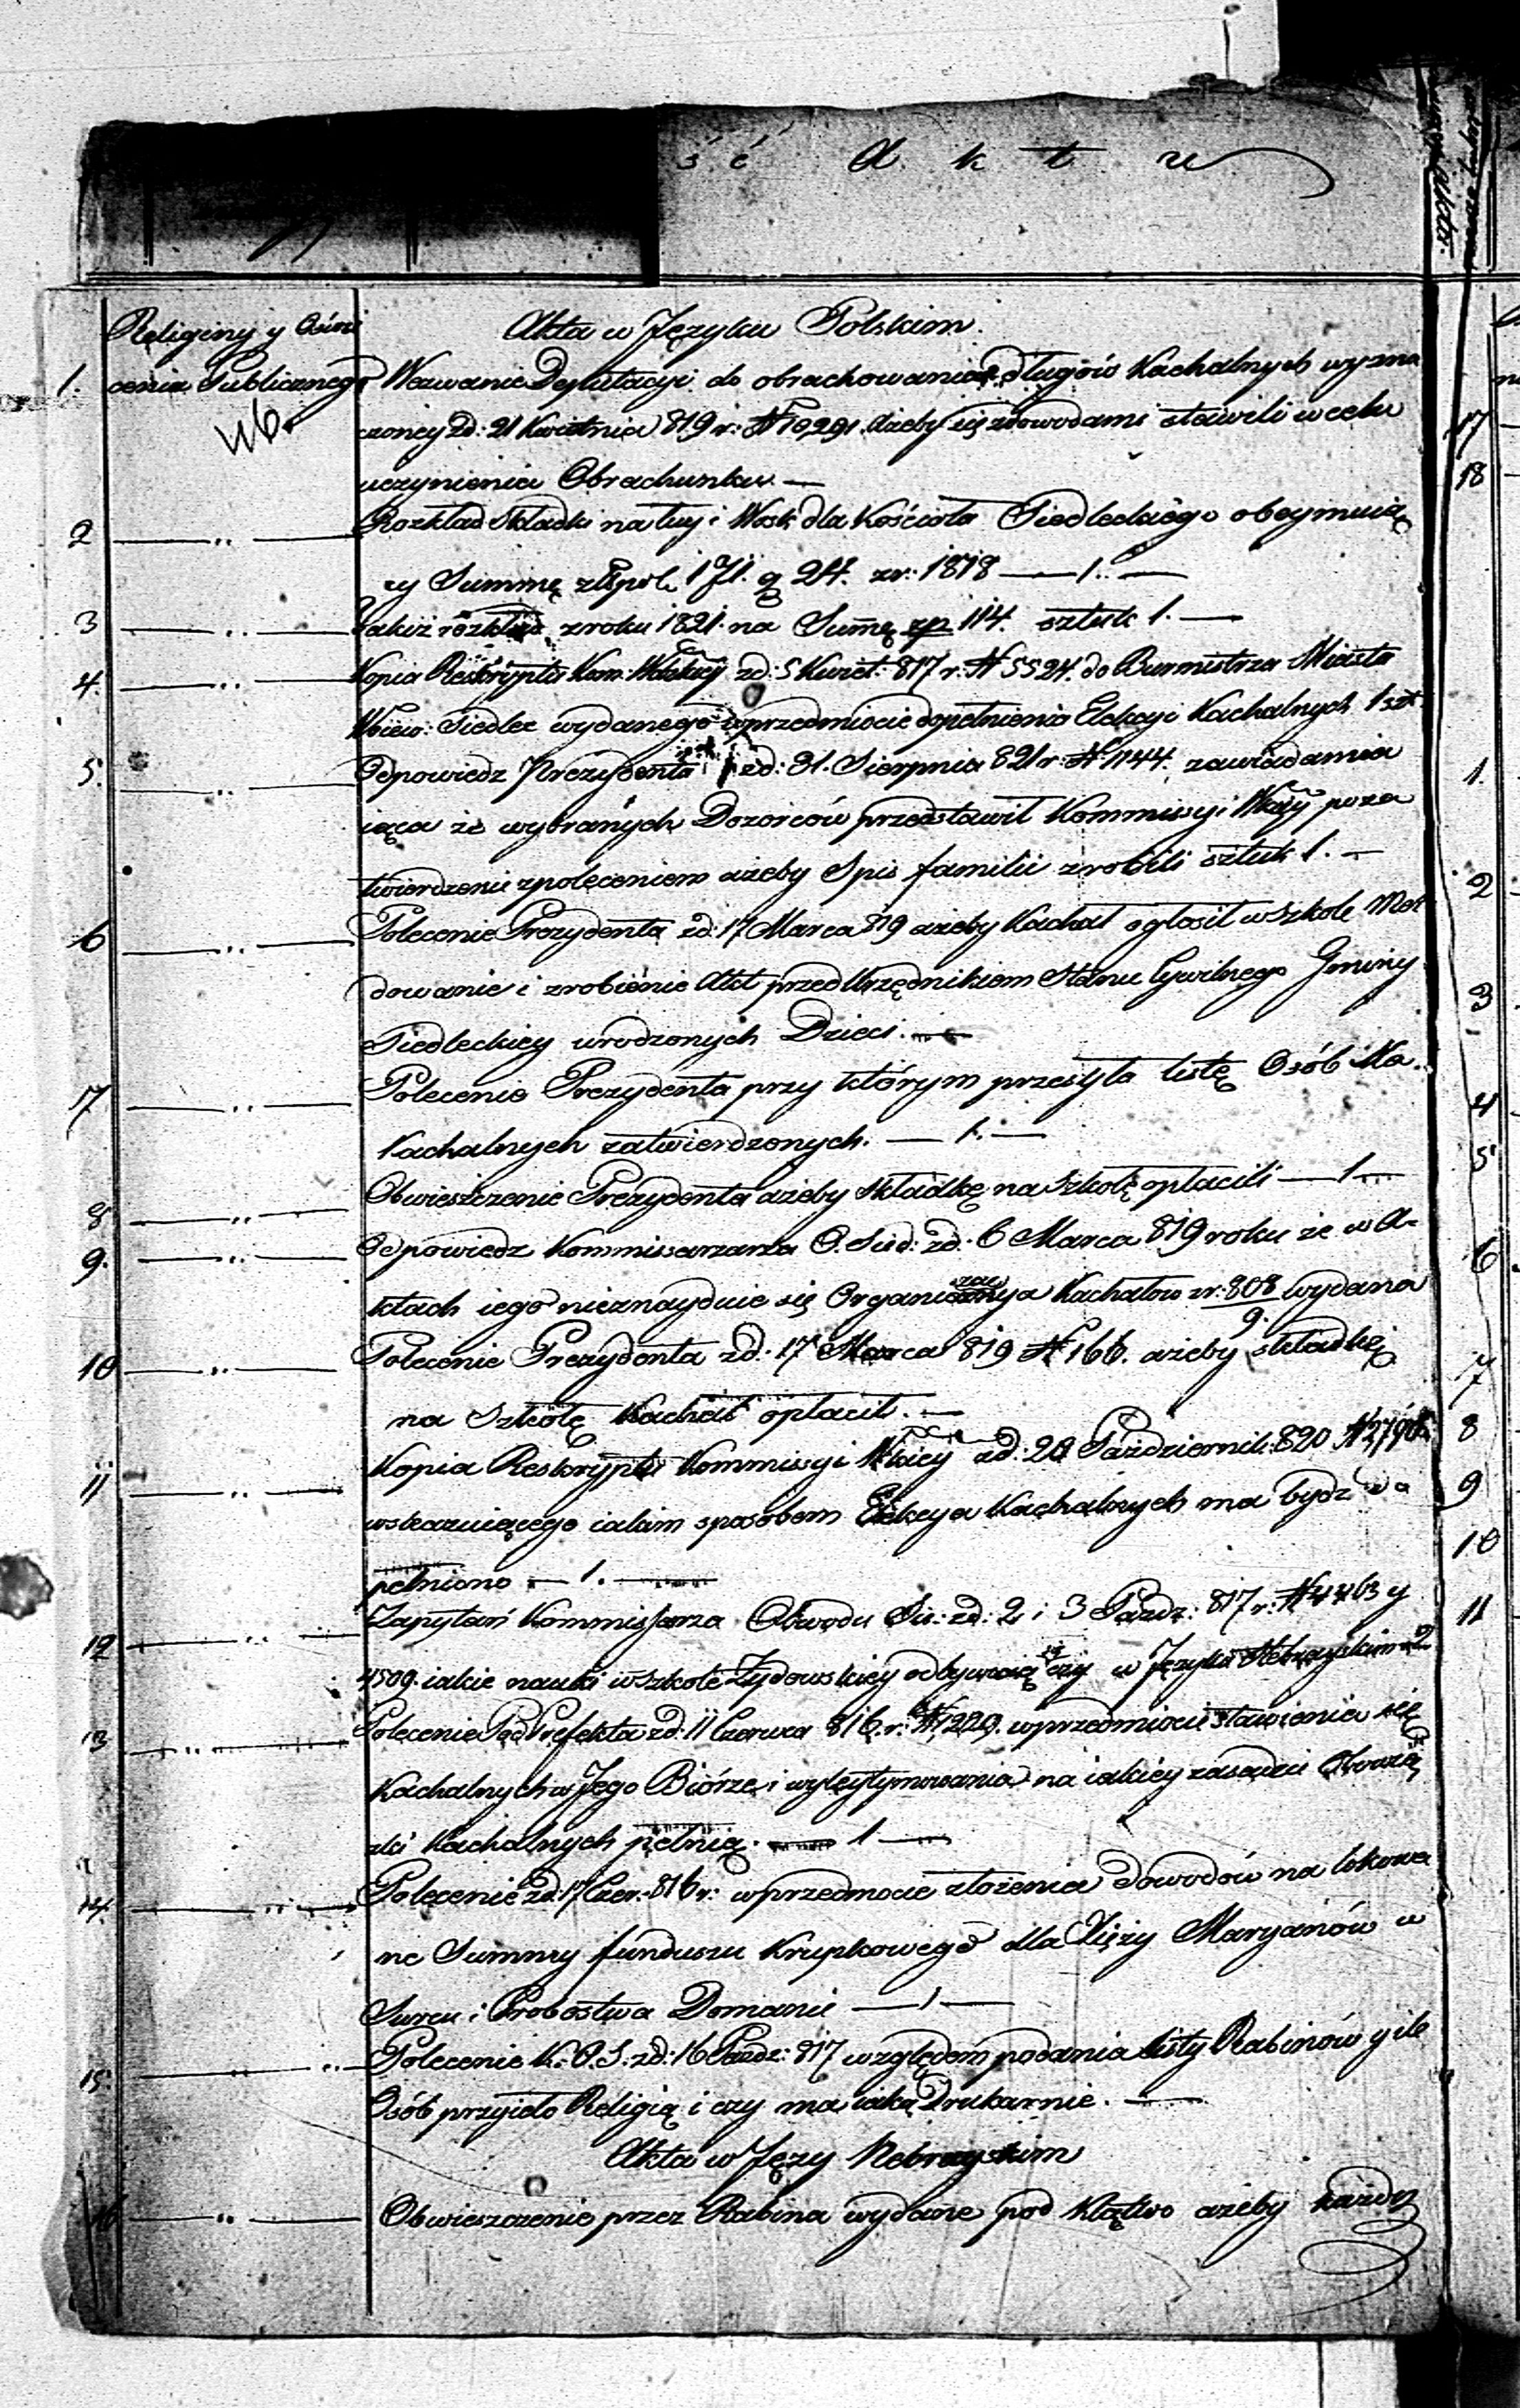 ść Aktu
Religiny y Oświe
cenia Publicznego
Akta w Języku Polskim.
1. Wezwanie Deputacyi do obrachowania długów Kachalnych wyzna
czoney zd: 21 Kwietnia 819 r: N 19,291. ażeby się zdowodami stawili w celu
uczynienia Obrachunku —
2 — „ — Rozkład Składki na łuy i Wosk dla Kościoła Siedleckiego obeymuią
cy Summę złłpol. 171. g 24. zr: 1818 — 1. —
3 — „ — Takiż rozkład z roku 1821. na Summę zp 114. sztuk 1. —
4. — „ — Kopia Reskryptu Kom: Wdzkiey zd: 5 Kwiet: 817 r: N 5524. do Burmistrza Miasta
Woiew: Siedlec wydanego w przedmiocie dopełnienia Elekcyi Kachalnych 1 szt
5. — „ — Odpowiedz Prezydenta zd: 31. Sierpnia 821 r: N 1744. zawiadamia
iąca że wybranych Dozorców przedstawił Kommissyi Wkiy poza
twierdzenie zpoleceniem ażeby Spis familii zrobili sztuk 1. —
6 — „ — Polecenie Prezydenta zd: 17 Marca 819 ażeby Kachał ogłosił w Szkole Mel
dowanie i zrobienie Akt przed Urzędnikiem Stanu Cywilnego Gminy
Siedleckiey urodzonych Dzieci. —
7 — „ — Polecenie Prezydenta przy którym przesyła listę Osób Na
Kachalnych zatwierdzonych. — 1. —
8 — „ — Obwieszczenie Prezydenta ażeby składkę na Szkołę opłacili — 1 —
9. — „ — Odpowiedz Kommissarzarza O. Sied: zd: 6 Marca 819 roku że w A-
ktach iego nieznayduie się Organizacya Kachałow zr: 808/9. wydana
10 — „ — Polecenie Prezydenta zd: 17 Marca 819 N 166. ażeby składkę
na Szkołę Kachał opłacił. —
11 — „ — Kopia Reskryptu Kommissyi Wkiey zd: 20 Październik: 820
wskazuiącego iakim sposobem Elekcya Kachalnych ma bydz do
pełniono — 1. —
12 — „ — Zapytań Kommissarza Obwodu Sie: zd: 2 i 3 Paźdz: 817 r: N 4463 y
4509. iakie nauki w szkole Żydowskiey odbywaią się czy w Języku Hebrayskim 2
13 — „ — Polecenie PodPrefekta zd: 11 Czerwca 816. r: N 1,220. w przedmiocie stawienia się
Kachalnych w Jego Biórze i wylegtymowania na iakiey zasadzie Obowią
zki Kachalnych pełnią. — 1 —
14. — „ — Polecenie zd: 17 Czer: 816 r: w przedmocie złożenia dowodów na lokowa
ne Summy funduszu Krupkowego dla Xięży Maryanów w
i Probostwa Domanic — 1 —
15. — „ — Polecenie K. O. S. zd: 16 Paźdz: 817 względem podania listy Rabinów y ile
Osób przyięło Religią i czy ma iaką Drukarnie. —
Akta w Języ Hebrayskim
16 — „ — Obwieszczenie przez Rabina wydane pod klątwo ażeby każdy
17
18
1.
2
3
4
5
6
7
8
9
10
11